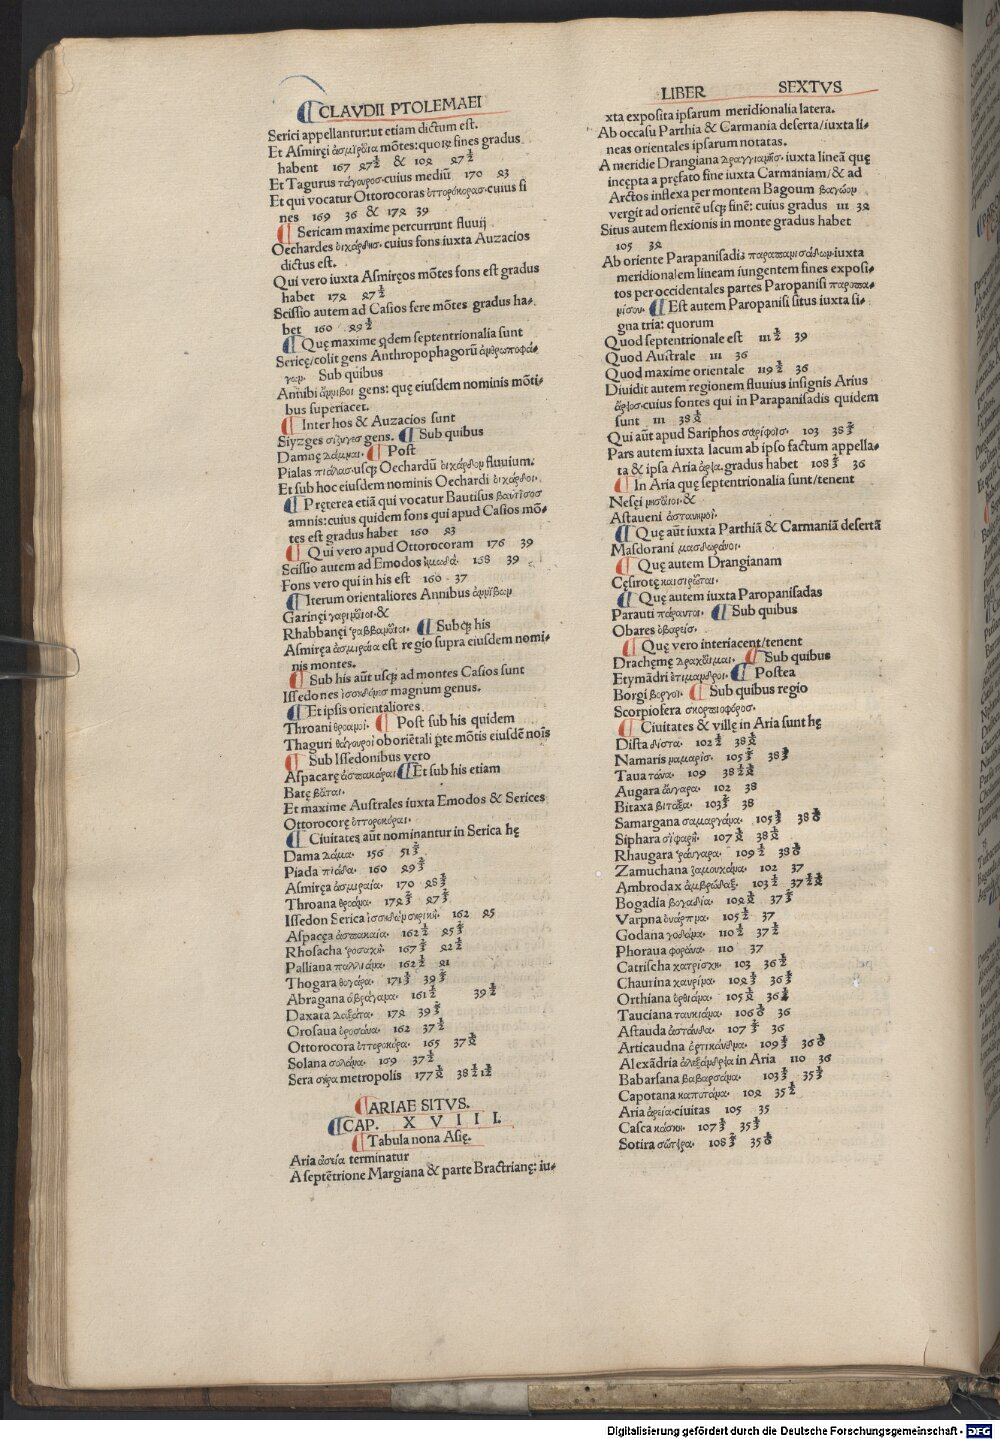 CLAVDII PTOLEMAEI
Serici appellantur:ut etiam dictum est.
Et Asmiręi ἀσμιραῖα mōtes:quoꝝ fines gradus
habent 167 27½ & 102 27½
Et Tagurus τάγουρος·cuius mediū 170 23
Et qui vocatur Ottorocoras ὀττορόκορας·cuius fi
nes 169 36 & 172 39
Sericam maxime percurrunt fluuij
Oechardes οἰχάρδης· cuius fons iuxta Auzacios
dictus est.
Qui vero iuxta Asmiręos mōtes fons est gradus
habet 172 27½
Scissio autem ad Casios fere mōtes gradus ha-
bet 160 29½
Quę maxime qdem septentrionalia sunt
Sericę/colit gens Anthropophagorū ἀνθρωποφά-
γων· Sub quibus
Annibi ἄννιβοι gens: quę eiusdem nominis mōti-
bus superiacet.
Inter hos & Auzacios sunt
Siyzges σίζυγες gens. Sub quibus
Damnę δάμναι· Post
Pialas πιάλας·usq; Oechardū οἰχάρδου fluuium.
Et sub hoc eiusdem nominis Oechardi οἰχάρδοι.
Pręterea etiā qui vocatur Bautisus βαυτίσος
amnis:cuius quidem fons qui apud Casios mō-
tes est gradus habet 160 23
Qui vero apud Ottorocoram 176 39
Scissio autem ad Emodos ἠμωδὰ· 168 39
Fons vero qui in his est 160 37
Iterum orientaliores Annibus ἀννίβων
Garinęi γαριναῖοι·&
Rhabbanęi ῥαββαναῖοι· Subq; his
Asmiręa ἀσμιραία est regio supra eiusdem nomi-
nis montes.
Sub his aūt usq; ad montes Casios sunt
Issedones ἰσσηδόνες magnum genus.
Et ipsis orientaliores
Throani θροανοὶ· Post sub his quidem
Thaguri θάγουροι ob oriētali pte mōtis eiusdē nois
Sub Issedonibus vero
Aspacarę ἀσπακάραι Et sub his etiam
Batę βᾶται·
Et maxime Australes iuxta Emodos & Serices
Ottorocorę ὀττοροκόραι·
Ciuitates aūt nominantur in Serica hę
Dama δάμα· 156 51⅔
Piada πιάδα· 160 29⅔
Asmiręa ἀσμιραία· 170 28⅔
Throana θροάνα· 172⅔ 27⅔
Issedon Serica ἰσσηδὼν σηρική· 162 25
Aspacęa ἀσπακαία· 162½ 25⅔
Rhosacha ῥοσαχὴ· 167⅔ 22½
Palliana παλλιάνα· 162½ 21
Thogara θογάρα· 171⅓ 39⅔
Abragana ἀβράγανα· 161½ 39½
Daxata δαξάτα· 172 39⅔
Orosaua ὀροσάνα· 162 37½
Ottorocora ὀττοροκόρα· 165 37
Solana σολάνα· 169 37½
Sera σήρα metropolis 177 38
ARIAE SITVS.
CAP. X V I I I.
Tabula nona Asię.
Aria ἀρεία terminatur
A septētrione Margiana & parte Bractrianę: iu-
LIBER SEXTVS
xta exposita ipsarum meridionalia latera.
Ab occasu Parthia & Carmania deserta/iuxta li-
neas orientales ipsarum notatas.
A meridie Drangiana δραγγιανῆς· iuxta lineā quę
incępta a pręfato fine iuxta Carmaniam/& ad
Arctos inflexa per montem Bagoum βαγῶον
vergit ad orientē usq; finē: cuius gradus 111 32
Situs autem flexionis in monte gradus habet
105 32
Ab oriente Parapanisadis παραπανισάδων·iuxta
meridionalem lineam iungentem fines exposi-
tos per occidentales partes Paropanisi παροπα-
νίσου· Est autem Paropanisi situs iuxta si-
gna tria: quorum
Quod septentrionale est 111½ 39
Quod Australe 111 36
Quod maxime orientale 119½ 36
Diuidit autem regionem fluuius insignis Arius
ἄριος·cuius fontes qui in Parapanisadis quidem
sunt 111 38
Qui aūt apud Sariphos σαρίφοις· 103 38⅔
Pars autem iuxta lacum ab ipso factum appella-
ta & ipsa Aria ἀρία·gradus habet 108⅔ 36
In Aria quę septentrionalia sunt/tenent
Nesęi νισαῖοι·&
Astaueni ἀσταυηνοὶ·
Quę aūt iuxta Parthiā & Carmaniā desertā
Masdorani μασδωράνοι·
Quę autem Drangianam
Cęsirotę καισιρῶται·
Quę autem iuxta Paropanisadas
Parauti πάραυτοι· Sub quibus
Obares ὀβαρεῖς·
Quę vero interiacent/tenent
Drachęmę δραχαῖμαι· Sub quibus
Etymādri ἐτιμανδροι· Postea
Borgi βοργοι· Sub quibus regio
Scorpiofera σκορπιοφόρος·
Ciuitates & villę in Aria sunt hę
Dista δίστα· 102½ 38
Namaris ναμαρὶς· 105⅔ 38⅔
Taua τάυα· 109 38
Augara ἄυγαρα· 102 38
Bitaxa βιτάξα· 103⅔ 38
Samargana σαμαργάνα· 105⅔ 38
Siphara σίφαρη· 107 38
Rhaugara ῥάυγαρα· 109½ 38
Zamuchana ζαμουχάνα· 102 37
Ambrodax ἀμβρώδαξ· 103½ 37
Bogadia βογαδία· 102 37⅔
Varpna ουάρπνα· 105½ 37
Godana γοδάνα· 110½ 37½
Phoraua φοράυα· 110 37
Catrischa χατρίσχη· 103 36½
Chaurina χαυρίνα· 102 36⅔
Orthiana ὀρθιάνα· 105 36
Tauciana ταυκιάνα· 106 36
Astauda ἀστάυδα· 107⅔ 36
Articaudna ἀρτικάυδνα· 109⅔ 36
Alexādria ἀλεξάνδρεια in Aria 110 36
Babarsana βαβαρσάνα· 103⅔ 35⅔
Capotana καποτάνα· 102 35½
Aria ἀρεία·ciuitas 105 35
Casca κάσκη· 107⅔ 35⅔
Sotira σώτειρα· 108⅔ 35
Digitalisierung gefördert durch die Deutsche Forschungsgemeinschaft - DFG